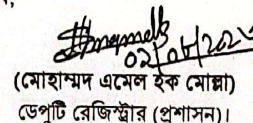 02/06/202
(মোহাম্মদ এমেল হক মোল্লা)
ডেপুটি রেজিস্ট্রার (প্রশাসন)।